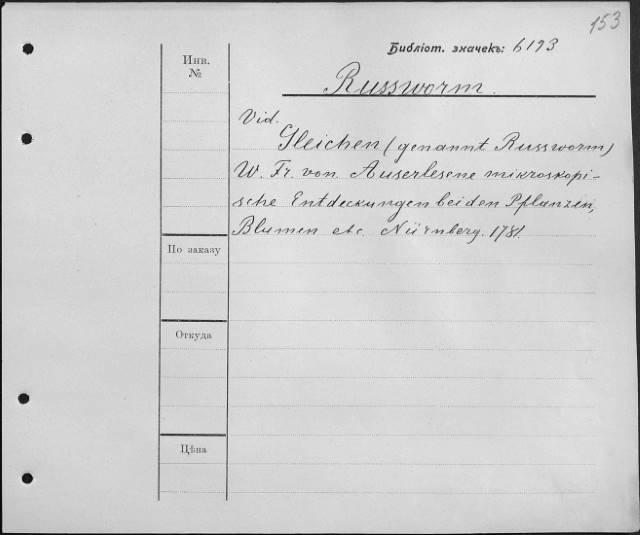 153
Библіот. значекъ: 6193
Инв.
№
Russworm.
Vid.
Gleichen (genannt Russworm)
W. Fr. von. Auserlesene mikroskopi-
sche Entdeckungen bei den Pflanzen,
Blumen etc. Nürnberg. 1781.
По заказу
Откуда
Цѣна